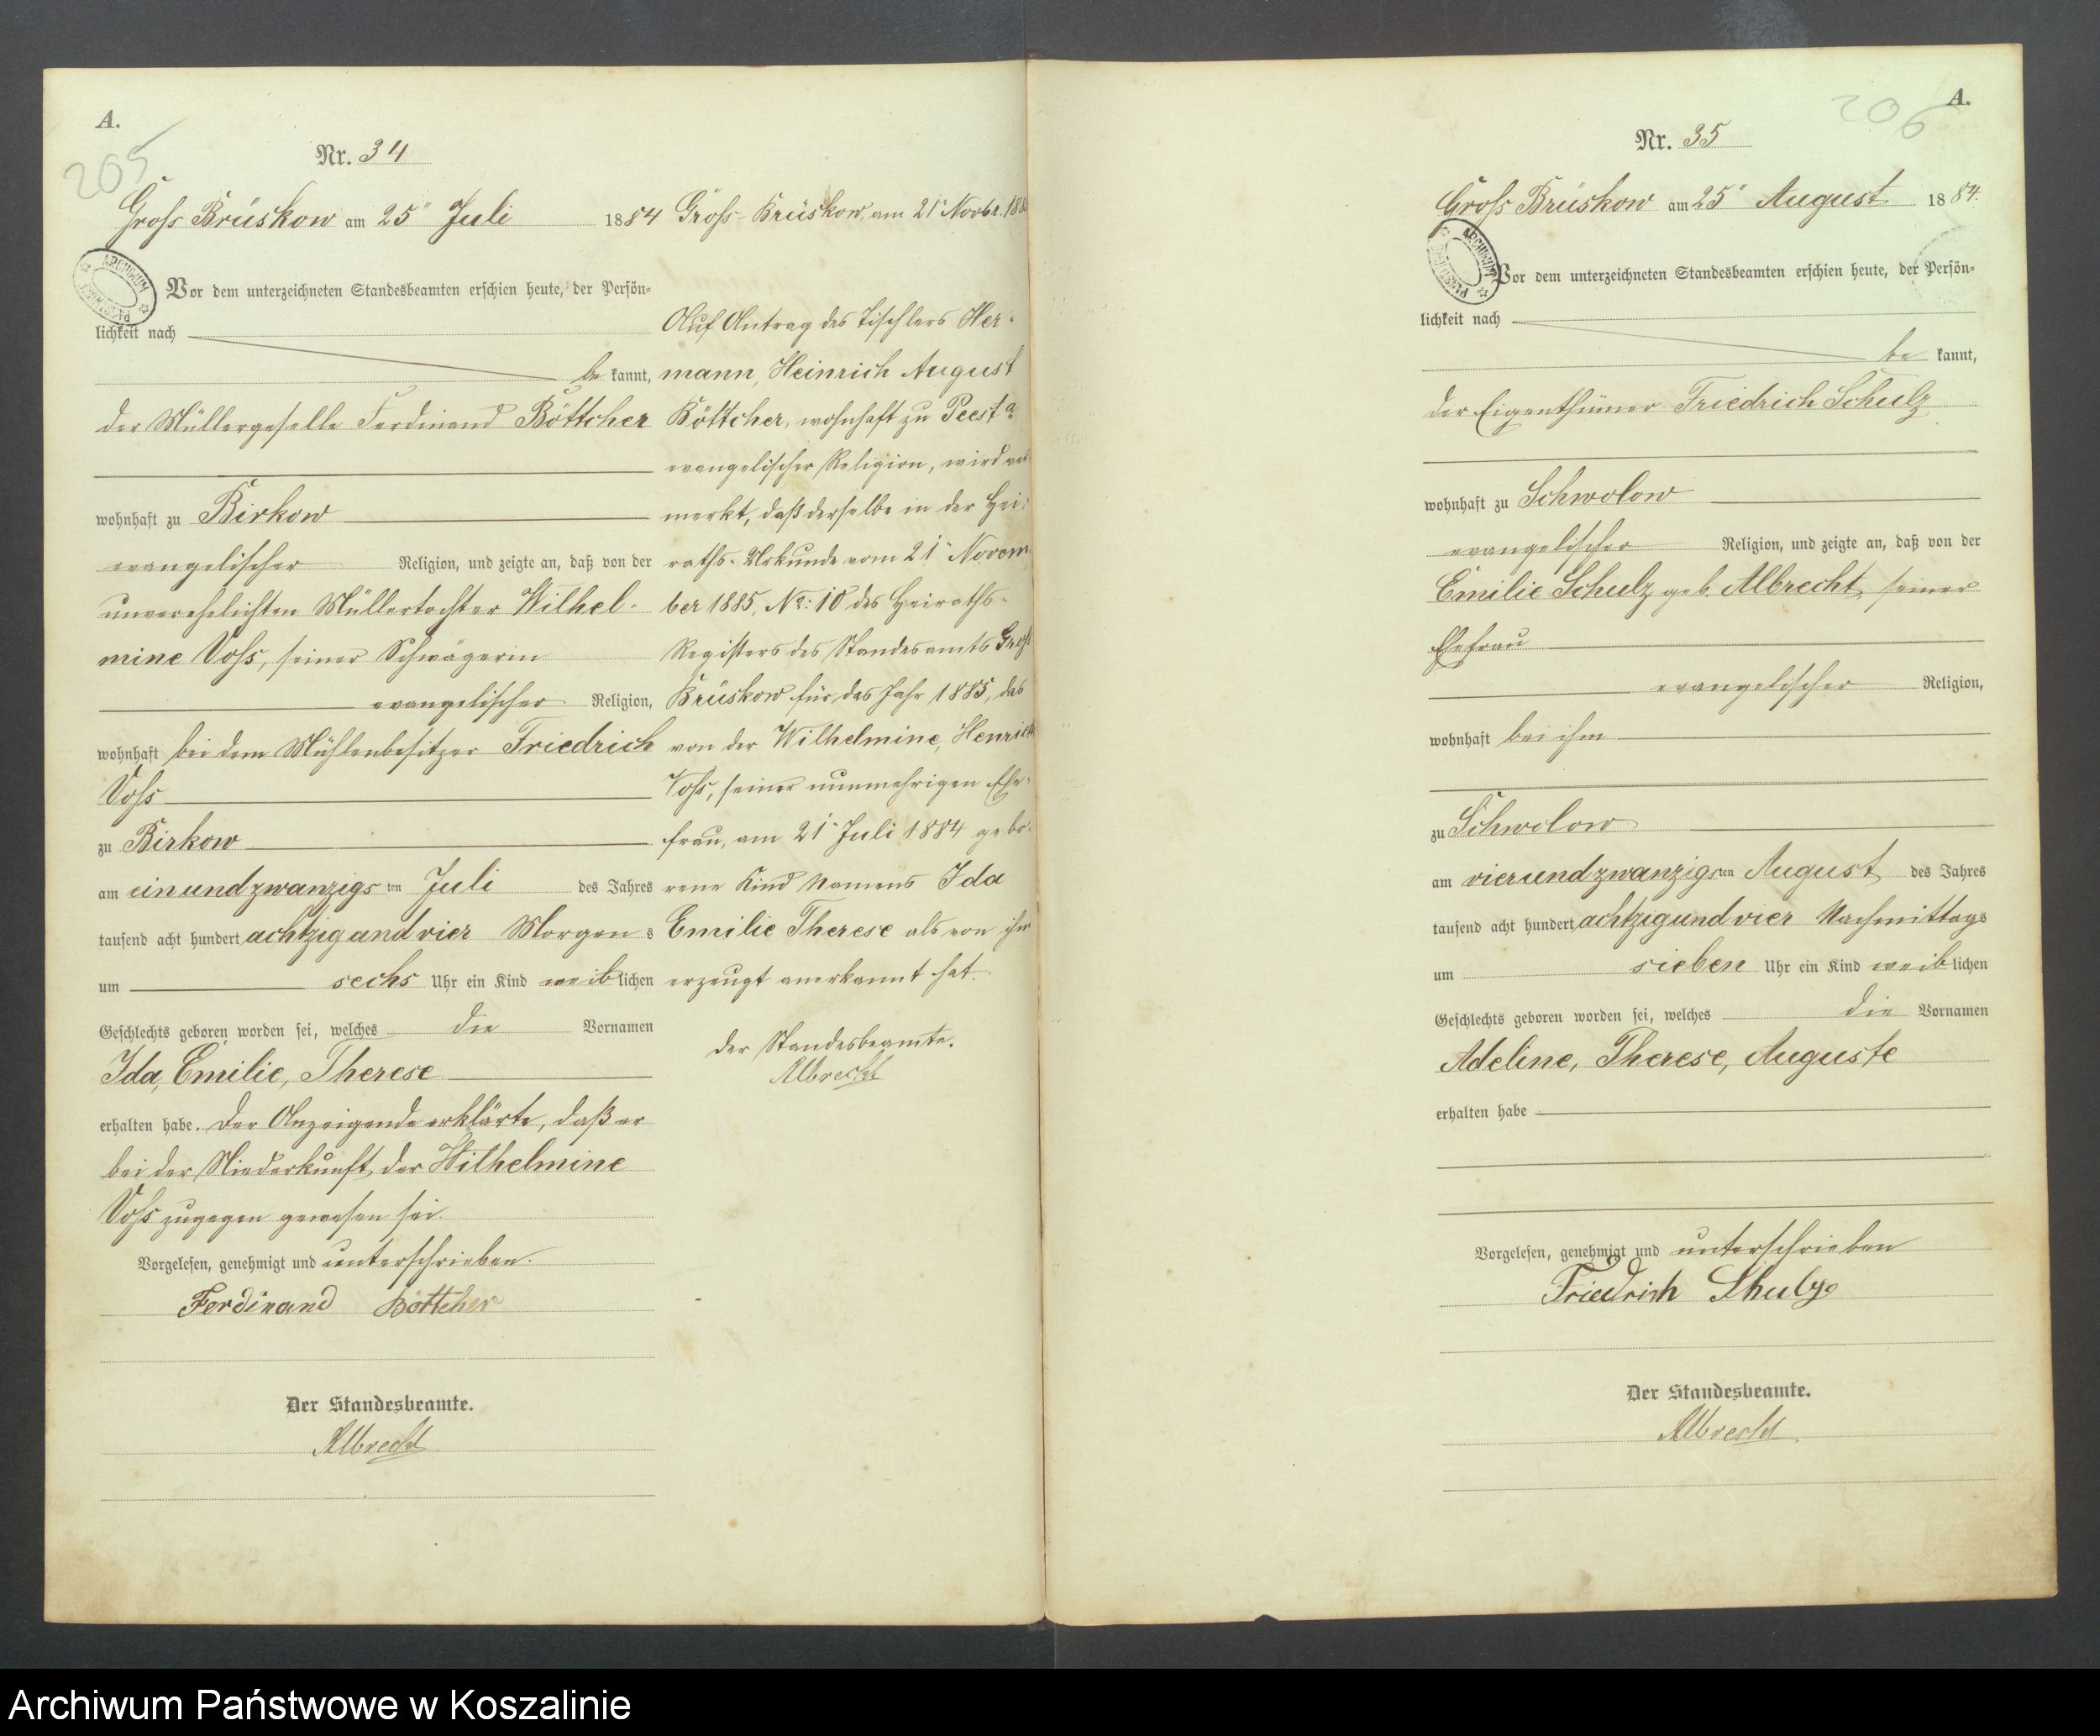 A.
205
Nr. 34
Groß Brüskow am 25" Juli 1884
ARCHIWUM
Vor dem unterzeichneten Standesbeamten erschien heute, der Persön-
lichkeit nach
be kannt,
der Müllergeselle Ferdinand Böttcher
wohnhaft zu Birkow
evangelischer Religion, und zeigte an, daß von der
unverehelichten Müllertochter Wilhel-
mine Voß, seiner Schwägerin
evangelischer Religion,
wohnhaft bei dem Mühlenbesitzer Friedrich
Voß
zu Birkow
am einundzwanzigs ten Juli des Jahres
tausend acht hundert achtzig und vier Morgen s
um sechs Uhr ein Kind weib lichen
Geschlechts geboren worden sei, welches die Vornamen
Ida, Emilie, Therese
erhalten habe. Der Anzeigende erklärte, daß er
bei der Niederkunft der Wilhelmine
Voß zugegen gewesen sei.
Vorgelesen, genehmigt und unterschrieben.
Ferdinand Böttcher
Der Standesbeamte.
Albrecht
Groß-Brüskow, am 21" Novbr. 188
Auf Antrag des Tischlers Her-
mann, Heinrich August
Böttcher, wohnhaft zu Peest
evangelischer Religion, wird ver
merkt, daß derselbe in der Hei-
raths-Urkunde vom 21" Novem
ber 1885, No: 10 des Heiraths-
Registers des Standesamts Groß
Brüskow für das Jahr 1885, das
von der Wilhelmine, Henriette
Voß, seiner nunmehrigen Ehe-
frau, am 21" Juli 1884 gebo-
rene Kind Namens Ida
Emilie Therese als von ihm
erzeugt anerkannt hat.
Der Standesbeamte.
Albrecht
A.
206
Nr. 35
Groß Brüskow am 25" August 1884.
ARCHIWUM
Vor dem unterzeichneten Standesbeamten erschien heute, der Persön-
lichkeit nach
be kannt,
der Eigenthümer Friedrich Schulz
wohnhaft zu Schwolow
evangelischer Religion, und zeigte an, daß von der
Emilie Schulz geb. Albrecht, seiner
Ehefrau
evangelischer Religion,
wohnhaft bei ihm
zu Schwolow
am vierundzwanzigs ten August des Jahres
tausend acht hundert achtzig und vier Nachmittags
um sieben Uhr ein Kind weib lichen
Geschlechts geboren worden sei, welches die Vornamen
Adeline, Therese, Auguste
erhalten habe
Vorgelesen, genehmigt und unterschrieben
Friedrich Schulz
Der Standesbeamte.
Albrecht
Archiwum Państwowe w Koszalinie